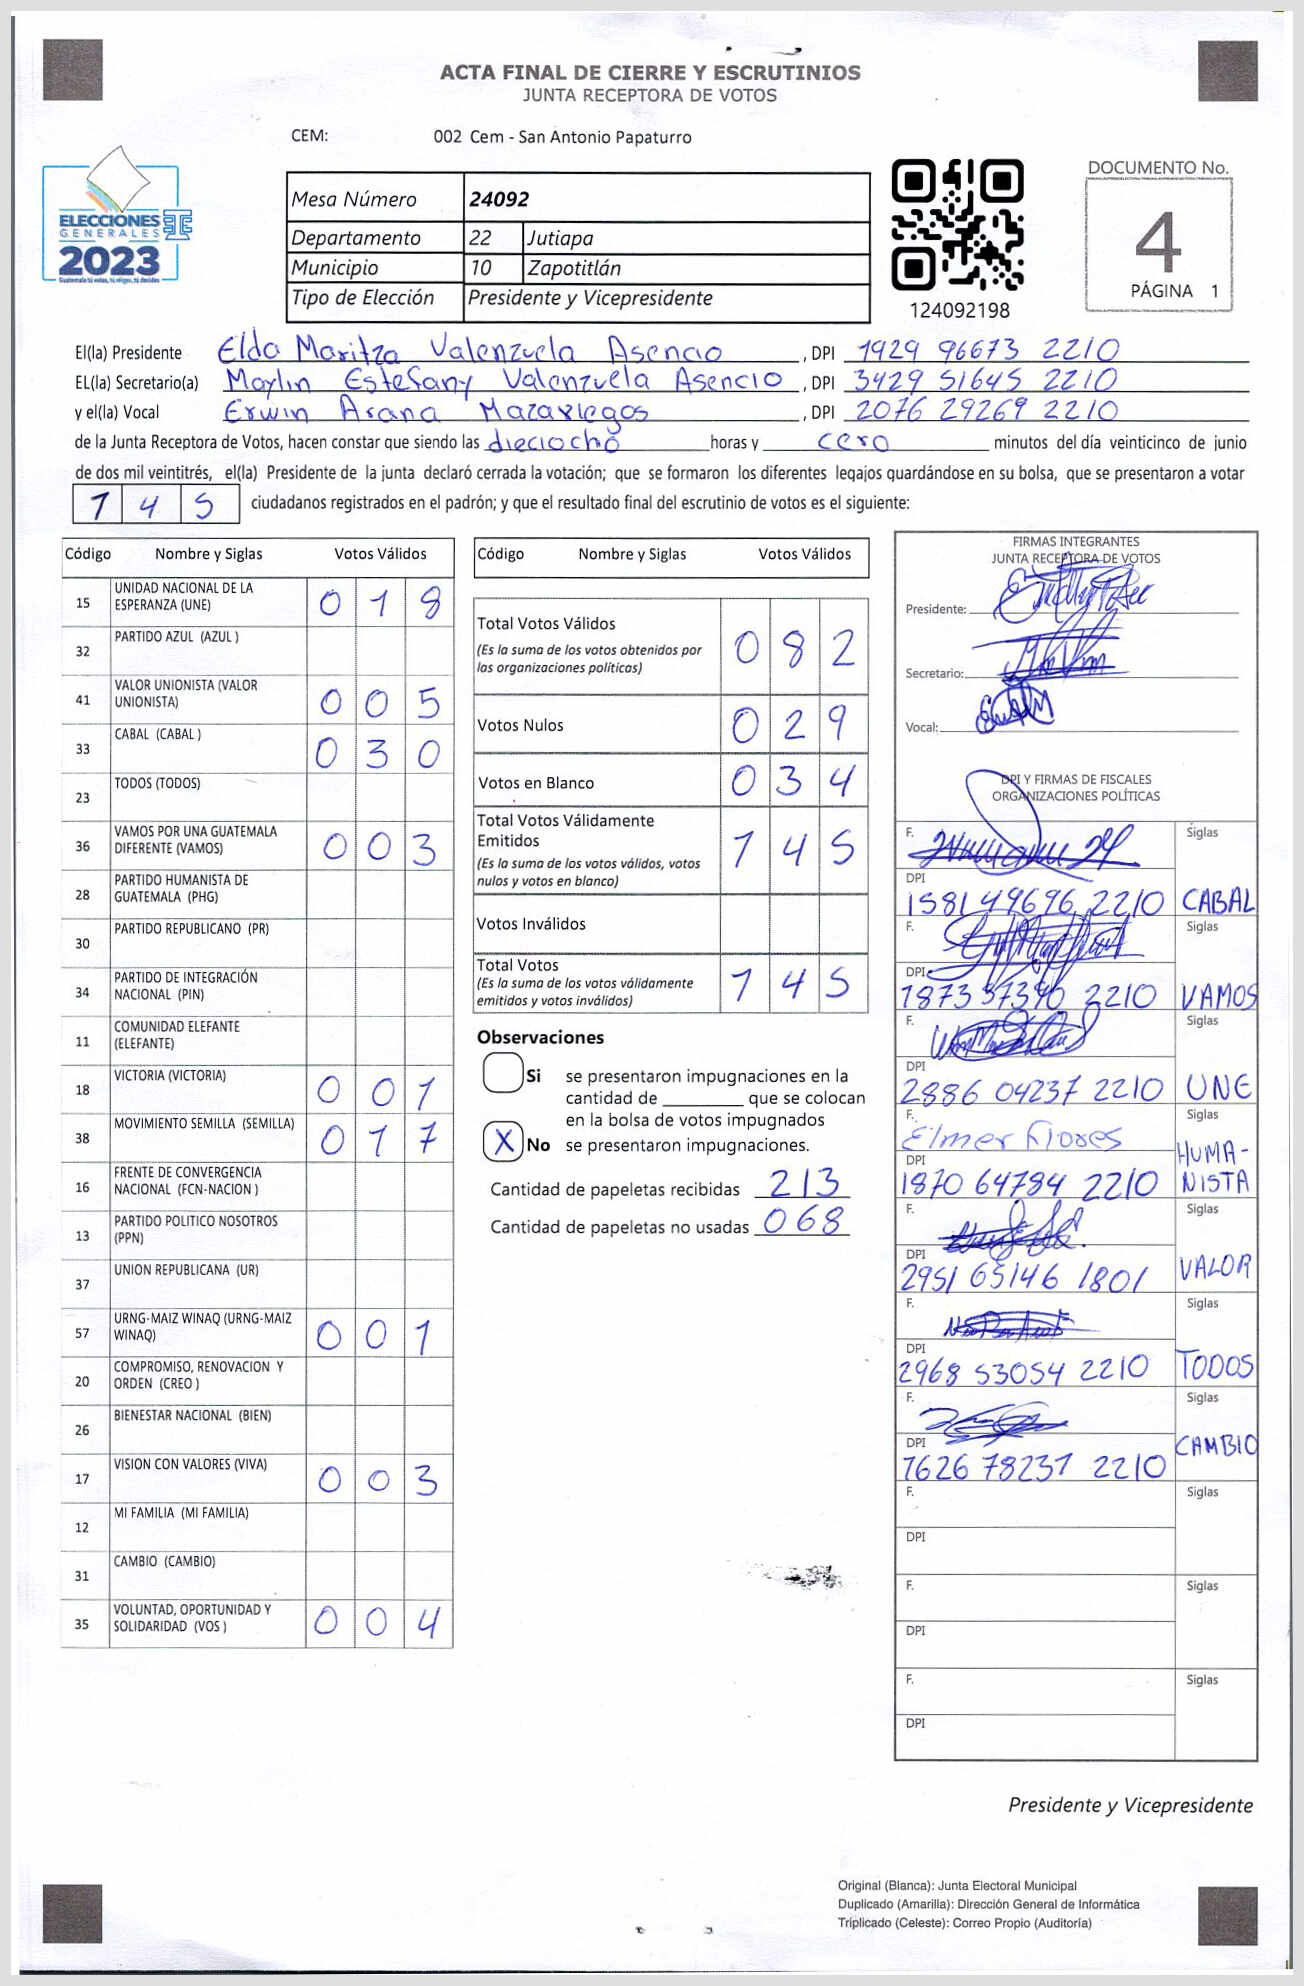 ACTA FINAL DE CIERRE Y ESCRUTINIOS
JUNTA RECEPTORA DE VOTOS
CEM: 002 Cem - San Antonio Papaturro
ELECCIONES
GENERALES
2023
Guatemala tú votas, tú eliges, tú decides
Mesa Número 24092
Departamento 22 Jutiapa
Municipio 10 Zapotitlán
Tipo de Elección Presidente y Vicepresidente
124092198
DOCUMENTO No.
4
PÁGINA 1
El(la) Presidente Elda Maritza Valenzuela Asencio , DPI 1929 96673 2210
EL(la) Secretario(a) Maylin Estefany Valenzuela Asencio , DPI 3429 51645 2210
y el(la) Vocal Erwin Arana Mazariegos , DPI 2076 29269 2210
de la Junta Receptora de Votos, hacen constar que siendo las dieciocho horas y cero minutos del día veinticinco de junio
de dos mil veintitrés, el(la) Presidente de la junta declaró cerrada la votación; que se formaron los diferentes legajos quardándose en su bolsa, que se presentaron a votar
1 4 5 ciudadanos registrados en el padrón; y que el resultado final del escrutinio de votos es el siguiente:
Código Nombre y Siglas Votos Válidos
15 UNIDAD NACIONAL DE LA ESPERANZA (UNE) 0 1 8
32 PARTIDO AZUL (AZUL )
41 VALOR UNIONISTA (VALOR UNIONISTA) 0 0 5
33 CABAL (CABAL ) 0 3 0
23 TODOS (TODOS)
36 VAMOS POR UNA GUATEMALA DIFERENTE (VAMOS) 0 0 3
28 PARTIDO HUMANISTA DE GUATEMALA (PHG)
30 PARTIDO REPUBLICANO (PR)
34 PARTIDO DE INTEGRACIÓN NACIONAL (PIN)
11 COMUNIDAD ELEFANTE (ELEFANTE)
18 VICTORIA (VICTORIA) 0 0 1
38 MOVIMIENTO SEMILLA (SEMILLA) 0 1 7
16 FRENTE DE CONVERGENCIA NACIONAL (FCN-NACION )
13 PARTIDO POLITICO NOSOTROS (PPN)
37 UNION REPUBLICANA (UR)
57 URNG-MAIZ WINAQ (URNG-MAIZ WINAQ) 0 0 1
20 COMPROMISO, RENOVACION Y ORDEN (CREO )
26 BIENESTAR NACIONAL (BIEN)
17 VISION CON VALORES (VIVA) 0 0 3
12 MI FAMILIA (MI FAMILIA)
31 CAMBIO (CAMBIO)
35 VOLUNTAD, OPORTUNIDAD Y SOLIDARIDAD (VOS ) 0 0 4
Código Nombre y Siglas Votos Válidos
Total Votos Válidos 0 8 2
(Es la suma de los votos obtenidos por
las organizaciones políticas)
Votos Nulos 0 2 9
Votos en Blanco 0 3 4
Total Votos Válidamente
Emitidos 1 4 5
(Es la suma de los votos válidos, votos
nulos y votos en blanco)
Votos Inválidos
Total Votos 1 4 5
(Es la suma de los votos válidamente
emitidos y votos inválidos)
Observaciones
Si se presentaron impugnaciones en la
cantidad de ________ que se colocan
en la bolsa de votos impugnados
X No se presentaron impugnaciones.
Cantidad de papeletas recibidas 213
Cantidad de papeletas no usadas 068
FIRMAS INTEGRANTES
JUNTA RECEPTORA DE VOTOS
Presidente:
Secretario:
Vocal:
DPI Y FIRMAS DE FISCALES
ORGANIZACIONES POLÍTICAS
F. Siglas
DPI
1581 49696 2210 CABAL
F. Siglas
DPI
2210 VAMOS
F. Siglas
DPI
2886 04237 2210 UNE
F. Elmer Flores Siglas
DPI HUMA-
1870 64784 2210 NISTA
F. Siglas
DPI
2951 65146 1801 VALOR
F. Siglas
DPI
2968 53054 2210 TODOS
F. Siglas
DPI
1626 78231 2210 CAMBIO
F. Siglas
DPI
F. Siglas
DPI
F. Siglas
DPI
Presidente y Vicepresidente
Original (Blanca): Junta Electoral Municipal
Duplicado (Amarilla): Dirección General de Informática
Triplicado (Celeste): Correo Propio (Auditoría)